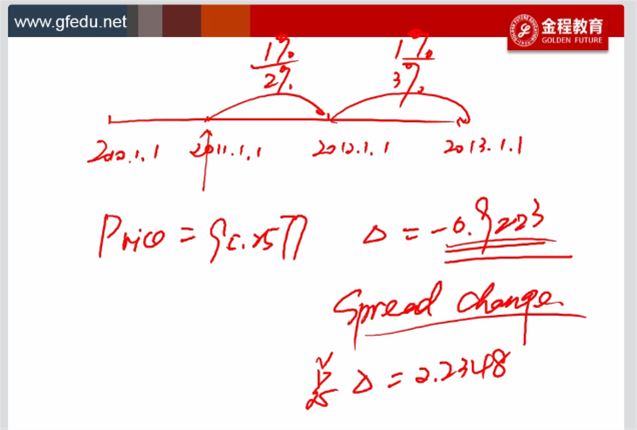 www.gfedu.net 金程教育
GOLDEN FUTURE
1% 1%
2% 3%
2010.1.1 2011.1.1 2012.1.1 2013.1.1
Price = Δ = -0.9223
Spread change
Δ = 2.2348